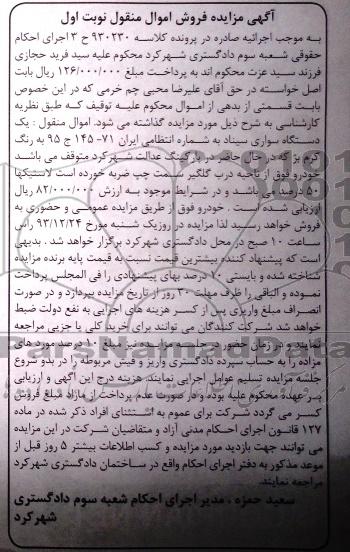 آگهی مزایده فروش اموال منقول نوبت اول
به موجب اجرائیه صادره در پرونده کلاسه ۹۳۰۲۳۰ ح ۳ اجرای احکام
حقوقی شعبه سوم دادگستری شهرکرد محکوم علیه سید فرید حجازی
فرزند سید عزت محکوم اند به پرداخت مبلغ ۱۲۶/۰۰۰/۰۰۰ ریال بابت
اصل خواسته در حق آقای علیرضا محبی چم خرمی که در این خصوص
بابت قسمتی از بدهی از اموال محکوم علیه توقیف که طبق نظریه
کارشناسی به شرح ذیل مورد مزایده گذاشته می شود. اموال منقول : یک
دستگاه سواری سیناد به شماره انتظامی ایران ۷۱- ۱۴۵ ج ۹۵ به رنگ
کرم بژ که در حال حاضر در پارکینگ عدالت شهرکرد متوقف می باشد
خودرو فوق از ناحیه درب گلگیر سمت چپ ضربه خورده است لاستیکها
۵۰ درصد می باشد و در شرایط موجود به ارزش ۸۲/۰۰۰/۰۰۰ ریال
ارزیابی شده است . خودرو فوق از طریق مزایده عمومی و حضوری به
فروش خواهد رسید لذا مزایده در روزیک شنبه مورخ ۹۳/۱۲/۲۴ راس
ساعت ۱۰ صبح در محل دادگستری شهرکرد برگزار خواهد شد . بدیهی
است که پیشنهاد کننده بیشترین قیمت نسبت به قیمت پایه برنده مزایده
شناخته شده و بایستی ۱۰ درصد بهای پیشنهادی را فی المجلس پرداخت
نموده و الباقی را ظرف مهلت ۳۰ روز از تاریخ مزایده بپردازد و در صورت
انصراف مبلغ واریزی پس از کسر هزینه های اجرایی به نفع دولت ضبط
خواهد شد شرکت کنندگان می توانند برای خرید کلی یا جزیی مراجعه
نمایند و در زمان حضور در جلسه مزایده نیز مبلغ ۱۰ درصد مورد های
مزاده را به حساب سپرده دادگستری واریز و فیش مربوطه را در بدو شروع
جلسه مزایده تسلیم عوامل اجرایی نمایند. هزینه درج این آگهی و ارزیابی
بر عهده محکوم علیه بوده و در صورت عدم پرداخت از مازاد مبلغ فروش
کسر می گردد شرکت برای عموم به استثنای افراد ذکر شده در ماده
۱۲۷ قانون اجرای احکام مدنی آزاد و متقاضیان شرکت در این مزایده
می توانند جهت بازدید مورد مزایده و کسب اطلاعات بیشتر ۵ روز قبل از
موعد مذکور به دفتر اجرای احکام واقع در ساختمان دادگستری شهرکرد
مراجعه نمایند.
سعید حمزه ، مدیر اجرای احکام شعبه سوم دادگستری
شهرکرد